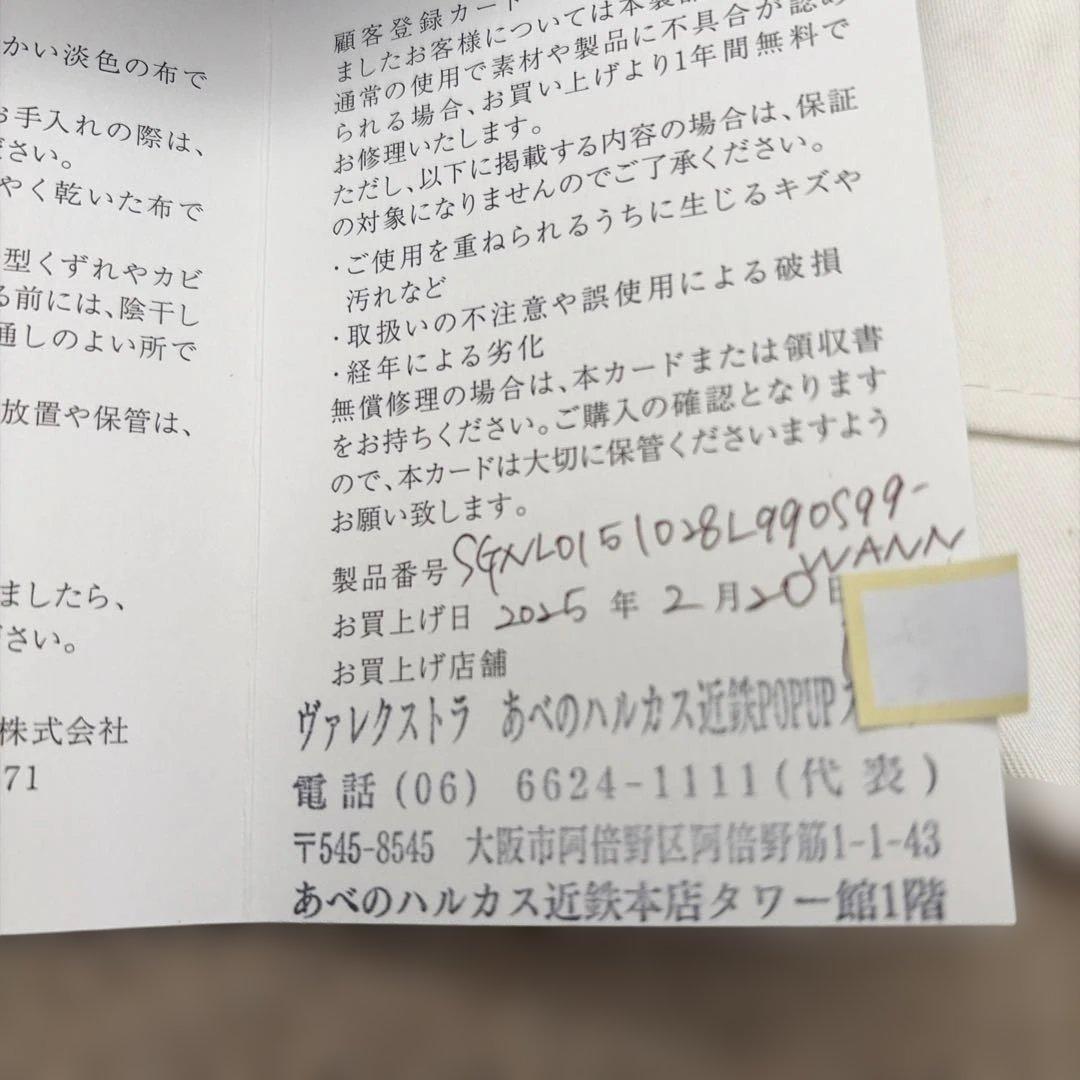 かい淡色の布で
お手入れの際は、
ださい。
やく乾いた布で
型くずれやカビ
る前には、陰干し
通しのよい所で
放置や保管は、
ましたら、
ださい。
株式会社
71
顧客登録カード
ましたお客様については本製
通常の使用で素材や製品に不具合が認め
られる場合、お買い上げより1年間無料で
お修理いたします。
ただし、以下に掲載する内容の場合は、保証
の対象になりませんのでご了承ください。
・ご使用を重ねられるうちに生じるキズや
汚れなど
・取扱いの不注意や誤使用による破損
・経年による劣化
無償修理の場合は、本カードまたは領収書
をお持ちください。ご購入の確認となります
ので、本カードは大切に保管くださいますよう
お願い致します。
製品番号 SGNL0151028L990S99-
WANN
お買上げ日 2025 年 2 月 20 日
お買上げ店舗
ヴァレクストラ あべのハルカス近鉄POPUP
電話(06) 6624-1111(代表)
〒545-8545 大阪市阿倍野区阿倍野筋1-1-43
あべのハルカス近鉄本店タワー館1階